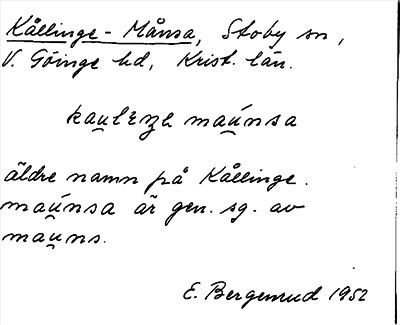 Kållinge - Månsa, Stoby sn,
V. Göinge hd, Krist. län.
maú̯nsa
äldre namn på Kållinge.
maú̯nsa är gen. sg. av
mau̯ns.
E. Bergenrud 1952